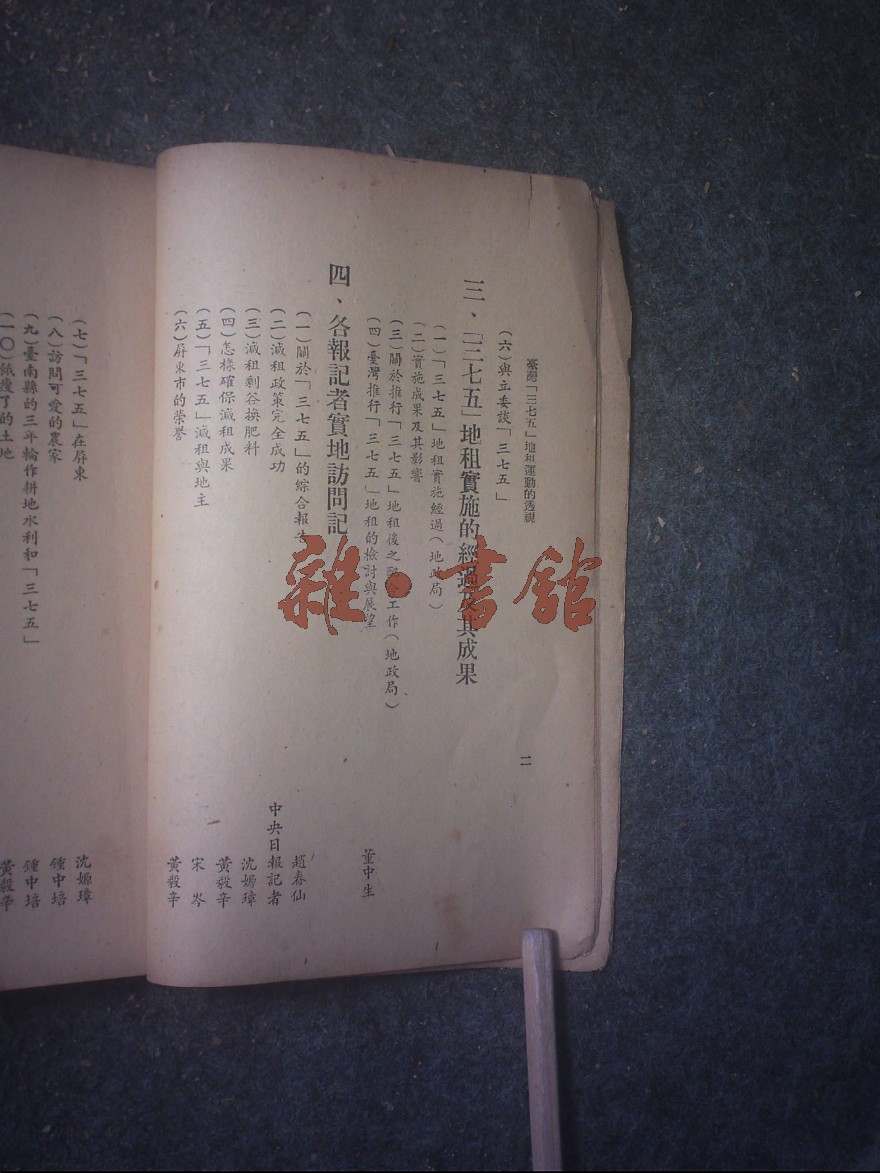 臺灣「三七五」地租運動的透視
二
(六)與立委談「三七五」
三、「三七五」地租實施的經過及其成果
(一)「三七五」地租實施經過(地政局)
(二)實施成果及其影響
(三)關於推行「三七五」地租後之配合工作(地政局)
(四)臺灣推行「三七五」地租的檢討與展望 董中生
四、各報記者實地訪問記
(一)關於「三七五」的綜合報告 趙春仙
(二)減租政策完全成功 中央日報記者
(三)減租剩谷換肥料 沈嫄璋
(四)怎樣確保減租成果 黃毅辛
(五)「三七五」減租與地主 宋岑
(六)屏東市的榮譽 黃毅辛
(七)「三七五」在屏東 沈嫄璋
(八)訪問可愛的農家 鍾中培
(九)臺南縣的三年輪作耕地水利和「三七五」 鍾中培
(一〇)餓瘦了的土地 黃毅辛
雜·書館